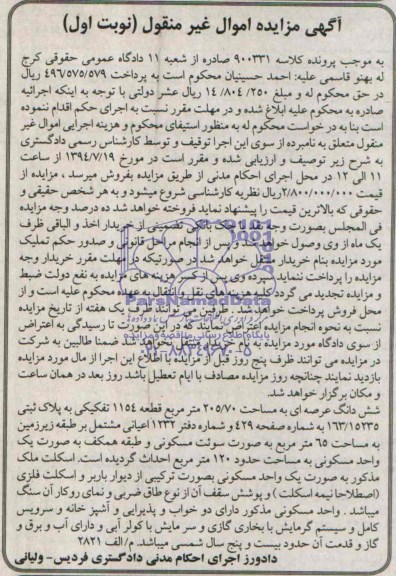 آگهی مزایده اموال غیر منقول (نوبت اول)
به موجب پرونده کلاسه ۹۰۰۳۳۱ صادره از شعبه ۱۱ دادگاه عمومی حقوقی کرج
له بهنو قاسمی علیه: احمد حسینیان محکوم است به پرداخت ۴۹۶/۵۷۵/۵۷۹ ریال
در حق محکوم له و مبلغ ۱۴/۸۰۴/۲۵۰ ریال عشر دولتی با توجه به اینکه اجرائیه
صادره به محکوم علیه ابلاغ شده و در مهلت مقرر نسبت به اجرای حکم اقدام ننموده
است بنا به در خواست محکوم له به منظور استیفای محکوم و هزینه اجرایی اموال غیر
منقول متعلق به نامبرده از سوی این اجرا توقیف و توسط کارشناس رسمی دادگستری
به شرح زیر توصیف و ارزیابی شده و مقرر است در مورخ ۱۳۹۴/۷/۱۹ از ساعت
۱۱ الی ۱۲ در محل اجرای احکام مدنی از طریق مزایده بفروش میرسد ، مزایده از
قیمت ۲/۸۰۰/۰۰۰/۰۰۰ریال نظریه کارشناسی شروع میشود و به هر شخص حقیقی و
حقوقی که بالاترین قیمت را پیشنهاد نماید فروخته خواهد شد ده درصد وجه مزایده
فی المجلس بصورت وجه نقد یا چک بانکی تضمینی از خریدار اخذ و الباقی ظرف
یک ماه از وی وصول خواهد شد و پس از انجام مراحل قانونی و صدور حکم تملیک
مورد مزایده بنام خریدار منتقل خواهد شد در صورتیکه در مهلت مقرر خریدار وجه
مزایده را پرداخت ننماید سپرده وی پس از کسر هزینه های مزایده به نفع دولت ضبط
و مزایده تجدید می گردد کلیه هزینه های نقل و انتقال به عهده محکوم علیه است و از
محل فروش پرداخت خواهد شد. طرفین می توانند ظرف یک هفته از تاریخ مزایده
نسبت به نحوه انجام مزایده اعتراض نمایند که در این صورت تا رسیدگی به اعتراض
از سوی دادگاه مورد مزایده به نام خریدار منتقل نخواهد شد ضمنا طالبین به شرکت
در مزایده می توانند ظرف پنج روز قبل از مزایده با اطلاع این اجرا از مال مورد مزایده
بازدید نمایند چنانچه روز مزایده مصادف با ایام تعطیل باشد روز بعد در همان ساعت
و مکان برگزار خواهد شد.
شش دانگ عرصه ای به مساحت ۲۰۵/۷۰ متر مربع قطعه ۱۱۵۴ تفکیکی به پلاک ثبتی
۱۶۳/۱۵۲۳۵ به شماره صفحه ۴۲۹ و شماره دفتر ۱۲۳۲ اعیانی مشتمل بر طبقه زیرزمین
به مساحت ۶۵ متر مربع به صورت سوئت مسکونی و طبقه همکف به صورت یک
واحد مسکونی به مساحت حدود ۱۲۰ متر مربع احداث گردیده است. اسکلت ملک
مذکور به صورت یک واحد مسکونی بصورت ترکیبی از دیوار باربر و اسکلت فلزی
(اصطلاحا نیمه اسکلت) و پوشش سقف آن از نوع طاق ضربی و نمای روکار آن سنگ
میباشد . واحد مسکونی مذکور دارای دو خواب و پذیرایی و آشپز خانه و سرویس
کامل و سیستم گرمایش با بخاری گازی و سر مایش با کولر آبی و دارای آب و برق و
گاز و قدمت آن حدود بیست و پنج سال شمسی میباشد. م/الف ۲۸۲۱
دادورز اجرای احکام مدنی دادگستری فردیس- ولیانی
ParsNamadData
۰۲۱-۸۸۳۴۹۶۷۰-۵